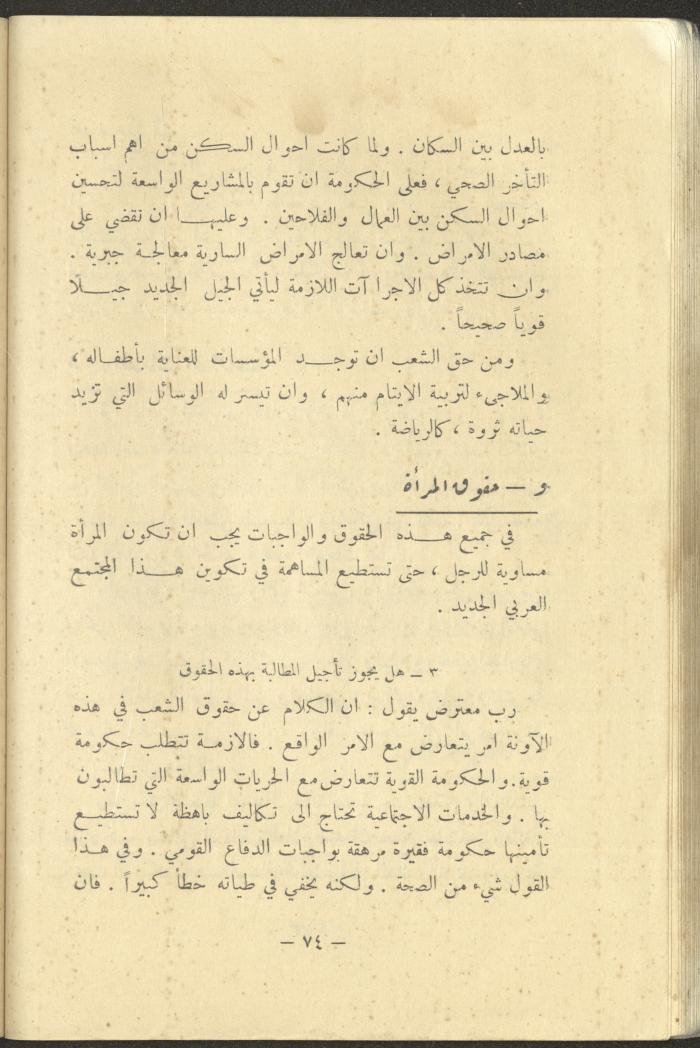 بالعدل بين السكان . ولما كانت احوال السكن من اهم اسباب
التأخر الصحي ، فعلى الحكومة ان تقوم بالمشاريع الواسعة لتحسين
احوال السكن بين العمال والفلاحين . وعليها ان تقضي على
مصادر الامراض . وان تعالج الامراض السارية معالجة جبرية .
وان تتخذ كل الاجراآت اللازمة ليأتي الجيل الجديد جيلًا
قوياً صحيحاً .
ومن حق الشعب ان توجد المؤسسات للعناية بأطفاله ،
والملاجىء لتربية الايتام منهم ، وان تيسر له الوسائل التي تزيد
حياته ثروة ، كالرياضة .
و — حقوق المرأة
في جميع هذه الحقوق والواجبات يجب ان تكون المرأة
مساوية للرجل ، حتى تستطيع المساهمة في تكوين هذا المجتمع
العربي الجديد .
٣ — هل يجوز تأجيل المطالبة بهذه الحقوق
رب معترض يقول : ان الكلام عن حقوق الشعب في هذه
الآونة امر يتعارض مع الامر الواقع . فالازمة تتطلب حكومة
قوية . والحكومة القوية تتعارض مع الحريات الواسعة التي تطالبون
بها . والخدمات الاجتماعية تحتاج الى تكاليف باهظة لا تستطيع
تأمينها حكومة فقيرة مرهقة بواجبات الدفاع القومي . وفي هذا
القول شيء من الصحة . ولكنه يخفي في طياته خطأ كبيراً . فان
— ٧٤ —